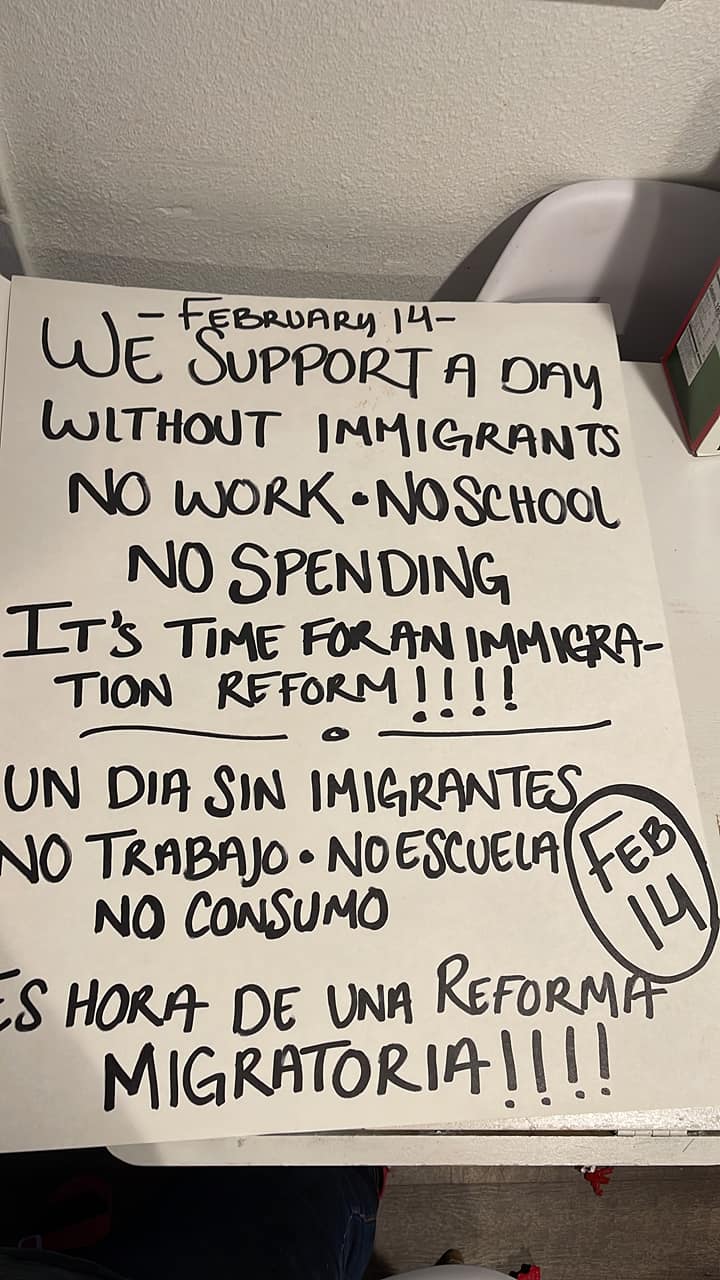 - FEBRUARY 14-
WE SUPPORT A DAY
WITHOUT IMMIGRANTS
NO WORK • NO SCHOOL
NO SPENDING
IT'S TIME FOR AN IMMIGRA-
TION REFORM!!!!
UN DIA SIN IMIGRANTES
NO TRABAJO • NO ESCUELA
NO CONSUMO
FEB
14
ES HORA DE UNA REFORMA
MIGRATORIA!!!!